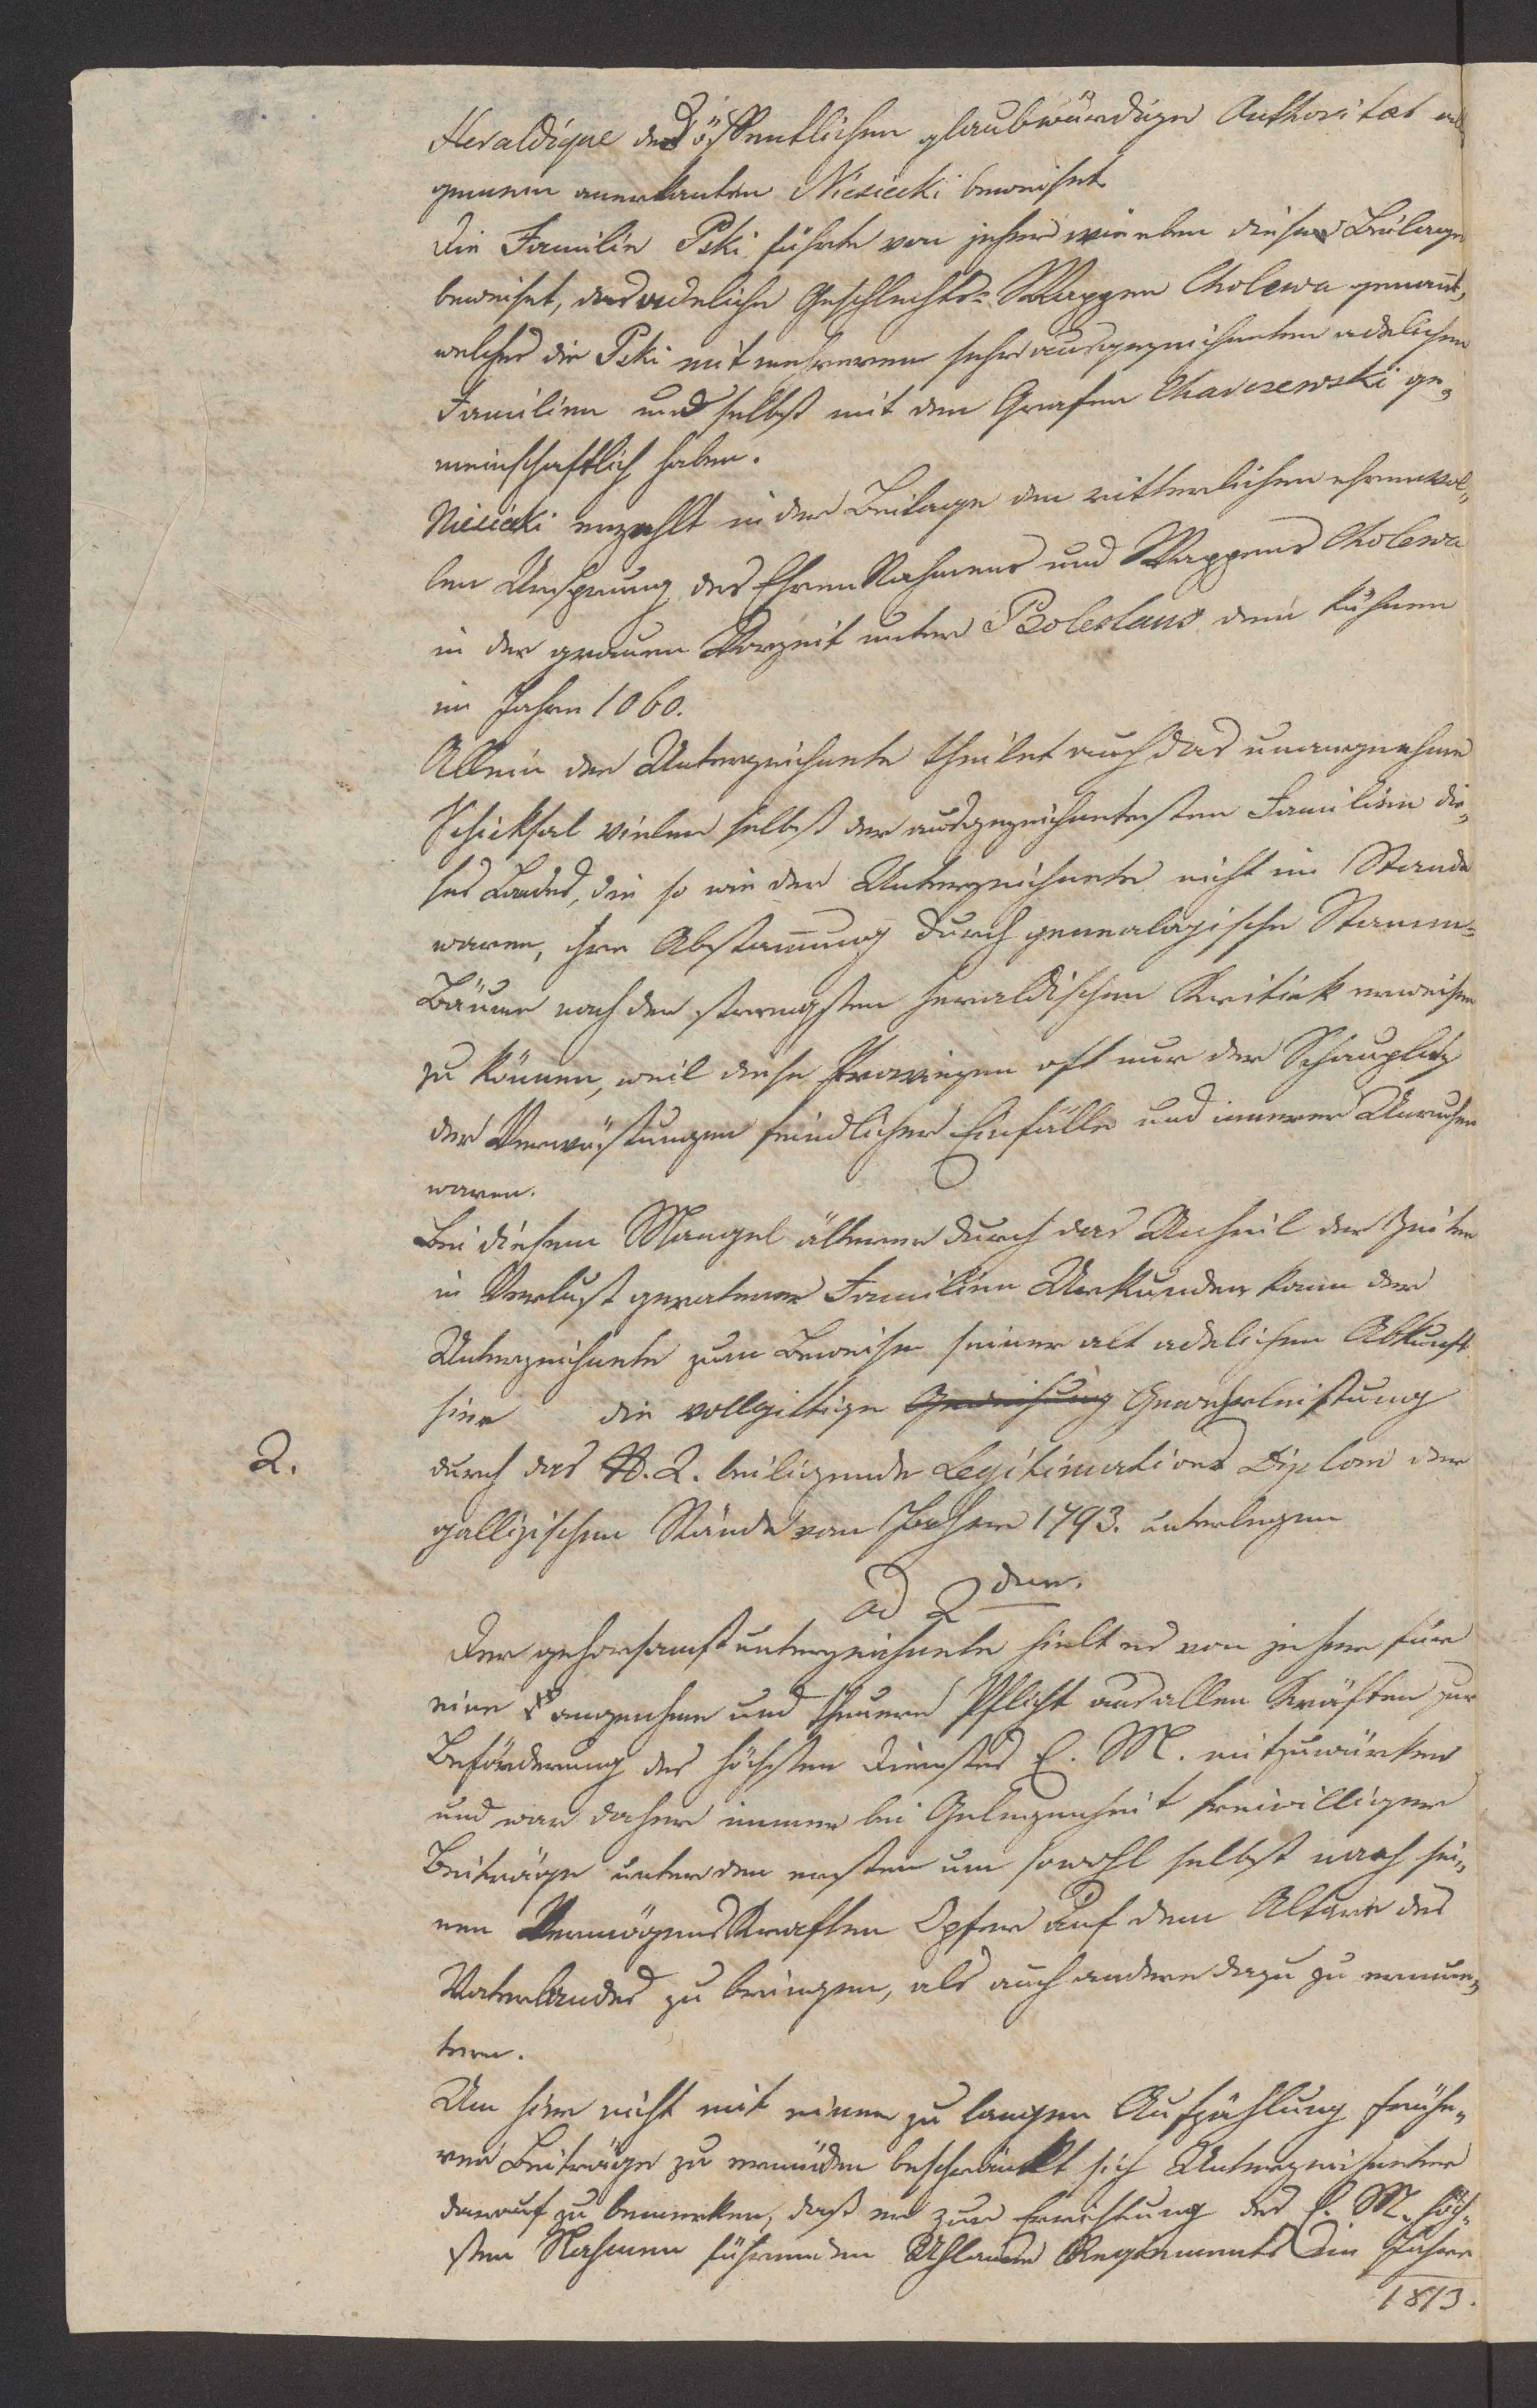 Heraldique des öffentlichen glaubwürdige Authoritæt all
gemein anerkanten Niesiecki beweiset
Die Familie Pski führte von jeher wie eben diese Beilage
beweiset, das adeliche Geschlechts-Wappen Cholewa genannt,
welches die Pski mit mehreren sehr ausgezeichneten adelichen
Familien und selbst mit den Grafen ge„
meinschaftlich haben.
Niesiecki erzählt in der Beilage den ritterlichen ehrenvol„
len Ursprung des Ehren Nahmens und Wappens Cholewa
in der grauen Vorzeit unter Boleslaus dem kühnen
im Jahre 1060.
Allein der Unterzeichnete theilet auch das unangenehme
Schicksal vieler selbst der ausgezeichnetesten Familien die„
ses Landes, die so wie der Unterzeichnete nicht im Stande
waren, ihre Abstam̄ung durch genealogische Stamm=
Bäume nach der strengsten heraldischen Kritick erweisen
zu können, weil diese Provinzen oft nur der Schauplatz
der Verwüstungen feindlicher Einfälle und innerer Unruhen
waren.
Bei diesem Mangel älterer durch das Unheil der Zeiten
in Verlust geratener Familien Urkunden kann der
Unterzeichnete zum Beweise seiner alt adelichen Abkunft
hier die vollgiltige Gewährleistung
2. durch das N. 2. beiligende Legitimations Diplom der
gallizischen Stände vom Jahre 1793. unterlegen
ad 2dum.
Der gehorsamst unterzeichnete hielt es von jeher für
eine angenehme und theuere Pflicht aus allen Kräften zur
Beförderung des höchsten Dienstes E. M. mitzuwürken
und war daher immer bei Gelegenheit freiwilliger
Beiträge unter den ersten um sowohl selbst nach sei„
nen Vermögens Kraften Opfer auf dem Altare des
Vaterlandes zu bringen, als auch andere dazu zu ermun„
tern.
Um hier nicht mit einer zu langen Aufzählung frühe„
rer Beiträge zu ermüden beschränkt sich Unterzeichneter
darauf zu bemerken, daß er zur Errichtung des E. M. höch„
sten Nahmen führenden Uhlanen Regiments im Jahre
1813.